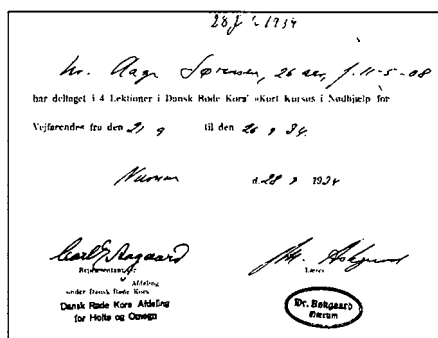 28/9 - 1934
hr. Aage Sørensen, 26 aar, f. 11-5-08
har deltaget i 4 Lektioner i Dansk Røde Kors' »Kort Kursus i Nødhjælp for
Vejfarende« fra den 21 9 til den 26 9 34.
Nærum d. 28 9 1934
Carl E Aagaard
Repræsentant for
Lærer
Afdeling
under Dansk Røde Kors
Dansk Røde Kors Afdeling
for Holte og Omegn
Dr. Bøkgaard
Nærum